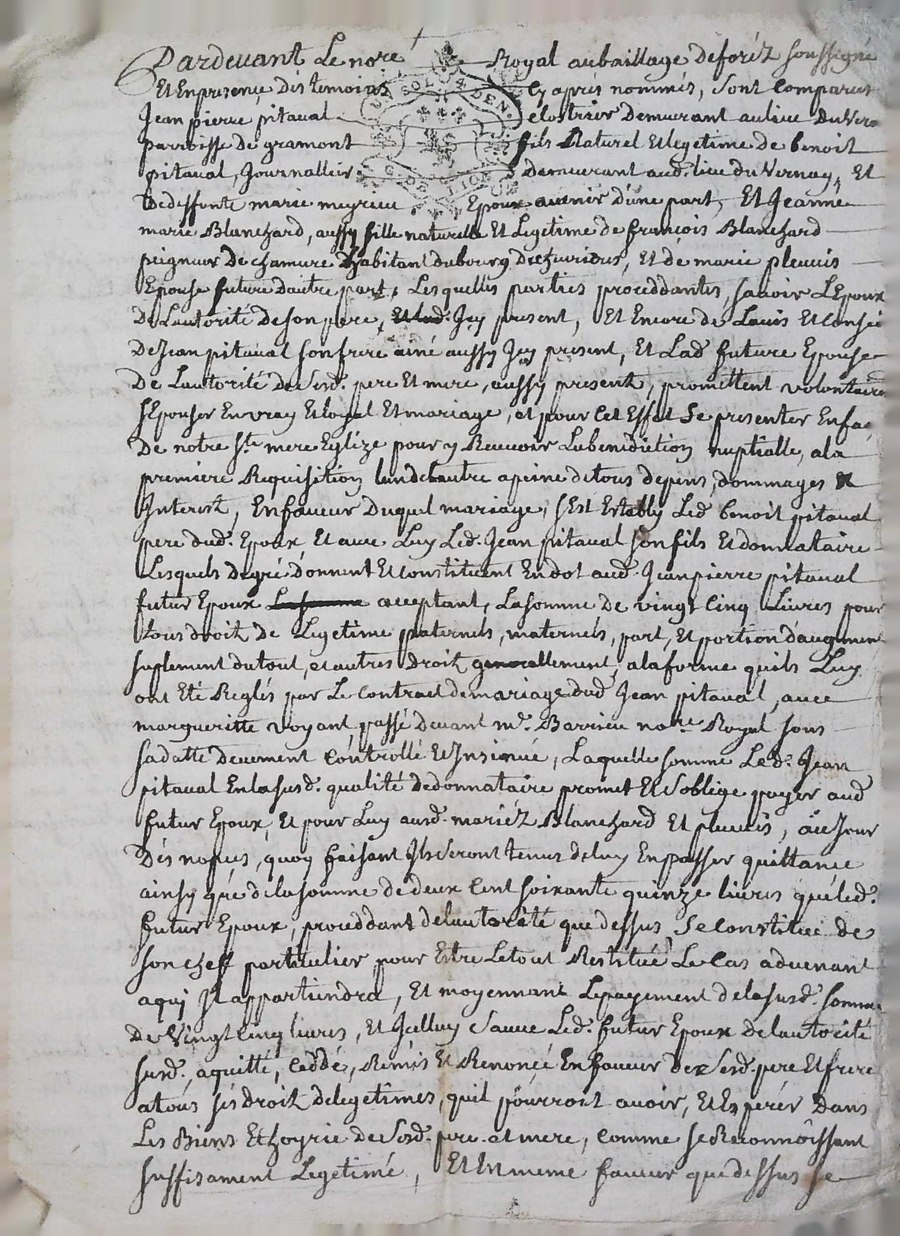 Pardevant Le nore Royal aubailliage deforéz soussigné
Et Enpresence dés temoins Cy aprés nommés, sont comparus
Jean pierre pitaval clostrier Demeurant aulieu Du Ver
parroisse de gramont fils Naturel Et legetime de benoit
pitaval, Journallier demeurant aud. lieu du Vernay, Et
dedeffonte marie meyrieu Epoux avenir d'une part, Et Jeanne
marie Blanchard, aussy fille naturelle Et Legetime de francois Blanchard
peigneur De chamure Dhabitant dubourg, Et de marie pleuvis
Epouse future dautre part, Lesquelles parties proceddantes, savoir L'Epoux
De Lautorité De son pere, Et lad. Jcy present, Et Encore de Lavis Et Consei
De Jean pitaval son frere ainé aussy Jcy present, Et Lad. future Epouse
De Lautorité de Sesd. pere Et mere, aussy present, promettent volontaire
s'Epouser En vray Et loyal Et mariage, et pour Cet Effet Se presenter En fac
De notre Ste mere Eglize pour y Recevoir La benediction nuptialle, ala
premiere Requisition lun de lautre apeine de tous depens, dommages &
Interest, En faveur Duquel mariage, s'Est Estably Led. benoit pitaval
pere dud. Epoux Et avec Luy Led. Jean pitaval son fils Et donnataire
Lesquels de gré donnent Et constituent En dot aud. Jean pierre pitaval
futur Epoux acceptant, La somme de vingt cinq Livres pour
tous droit de Legetime paternels, maternels, part, Et portion d'augmen
suplement du tout, et autres droit generallement, ala forme quils Luy
ont Eté Reglés par Le Contract de mariage dud. Jean pitaval, avec
margueritte voyant, passé devant me. Barrieu nore. Royal sous
sa datte deuement Controllé Et Insinué, Laquelle somme Led. Jean
pitaval En la susd. qualité de donnataire promet Et S'oblige payer aud.
futur Epoux, Et pour Luy ausd. mariéz Blanchard Et pleuvis, au Jour
Dés nopces, quoy faisant Ils Seront tenus de luy En passer quittance
ainsy que de la somme de deux Cent soixante quinze livres que led.
futur Epoux, proceddant de lautorité que dessus Se constitue de
son cheff particulier pour Etre Le tout Restitué Le Cas advenant
a qui Jl appartiendra, Et moyennant Le payement de la susd. somme
de Vingt Cinq livres, Et Jcelluy Sauve Led. futur Epoux de lautorité
susd. aquitté, Ceddé, Remis Et Renoncé En faveur de Sesd. pere Et frere
atous sés droit de legetimes, quil pourroit avoir, Et Esperér Dans
Les Biens Et hoyrie de Sesd. pere. et mere, comme se Reconnoissant
suffisament Legetimé, Et En meme faveur que dessus se